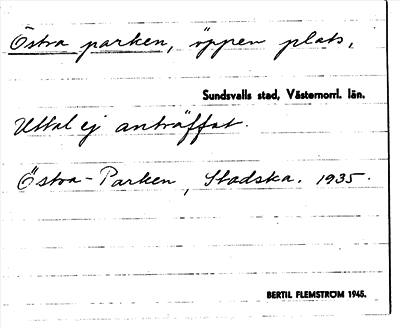 Östra parken, öppen plats,
Sundsvalls stad, Västernorrl. län.
Uttal ej anträffat.
Östra-Parken, Stadska. 1935.
BERTIL FLEMSTRÖM 1945.